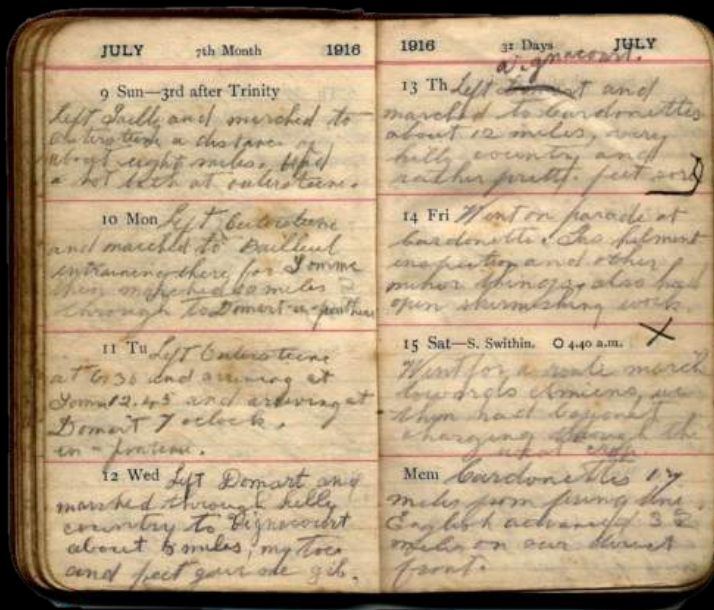 JULY 7th Month 1916
9 Sun—3rd after Trinity
Left Sailly and marched to
Outersteene a distance of
about eight miles. Had
a hot bath at outersteene.
10 Mon Left Outersteene
and marched to Bailleul
entraining there for Somme
then marched miles
through to Domart-en-ponthieu
11 Tu Left Outersteene
at 6.30 and arriving at
Somme 12.45 and arriving at
Domart 7 oclock.
en-
12 Wed Left Domart and
marched through hilly
country to Vignacourt
about miles, my toes
and feet gave me gib.
1916 31 Days JULY
Vignacourt.
13 Th Left Domart and
marched to Cardonettes
about 12 miles, very
hilly country and
rather pretty. feet sore
14 Fri Went on parade at
Cardonette. Gas helment
inspection and other
minor things, also had
open skirmishing work.
15 Sat—S. Swithin. O 4.40 a.m. X
Went for a route march
towards Amiens, we
then had bayonet
charging through the
wheat crop
Mem Cardonettes 17
miles from firing line.
English advanced 3
miles on our direct
front.